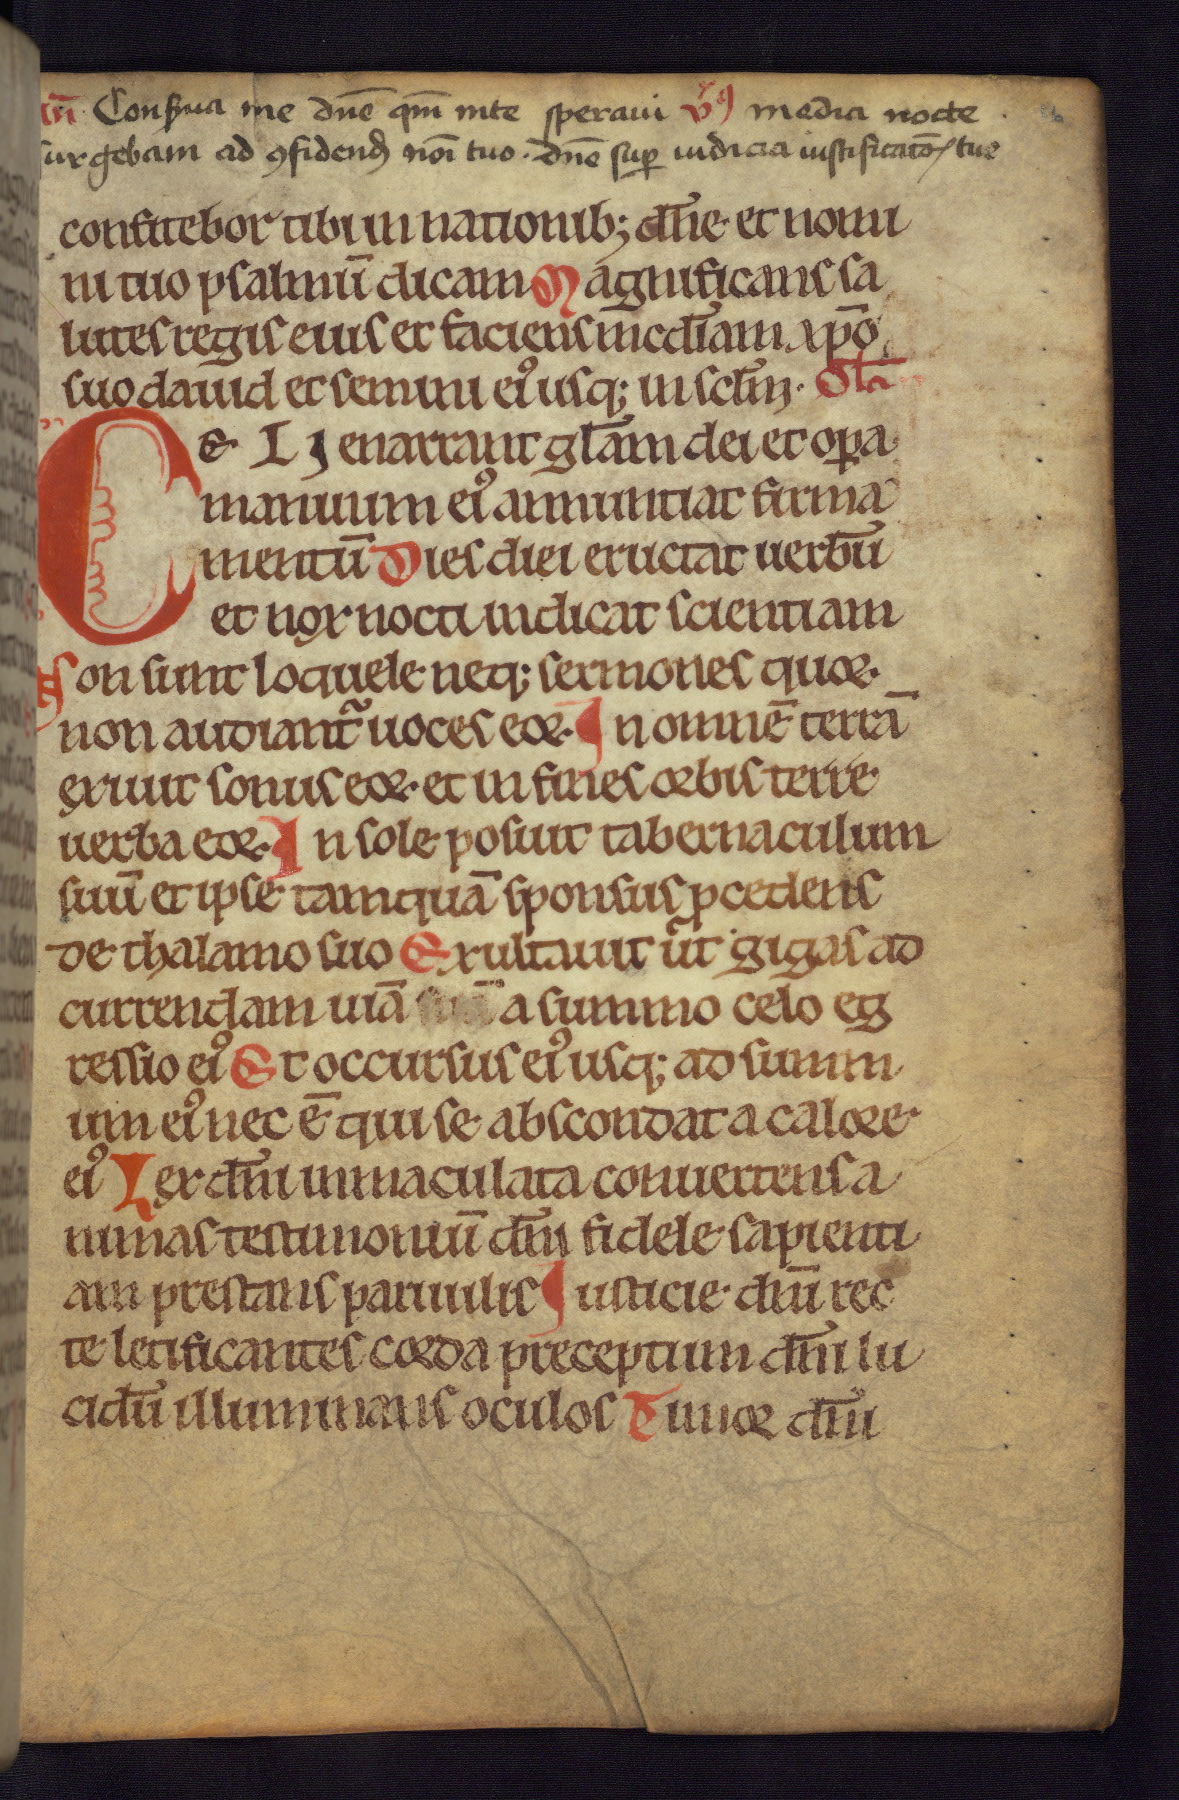 añ. Conserua me dn̄e qm̄ in te speraui v̄ꝰ media nocte
surgebam ad ꝯfidend̄ noī tuo. dn̄e suꝑ iudicia iustificatōꝝ tue
confitebor tibi in nationib; dn̄e et nomi
ni tuo psalmū dicam Magnificans sa
lutes regis eius et faciens mc̄diam xp̄o
suo dauid et semini eiꝰ usq; in sc̄lm. Gl̄a
CELI enarrant gl̄am dei et oꝑa
manuum eiꝰ annuntiat firma
mentū Dies diei eructat uerbū
et nox nocti indicat scientiam
Non sunt loquele neq; sermones quoꝝ
non audiant᷑ uoces eoꝝ In omnē terrā
exiuit sonus eoꝝ et in fines orbis terre
uerba eoꝝ In sole posuit tabernaculum
suū et ipse tamquā sponsus ꝓcedens
de thalamo suo Exultauit ut gigas ad
currendam uiā suā a summo celo eg
ressio eiꝰ Et occursus eiꝰ usq; ad summ
um eiꝰ nec ē qui se abscondat a calore
eiꝰ Lex dn̄i inmaculata conuertens a
nimas testimoniū dn̄i fidele sapienti
am prestans paruulis Iusticie dn̄i rec
te letificantes corda preceptum dn̄i lu
cidū illuminans oculos Timor dn̄i